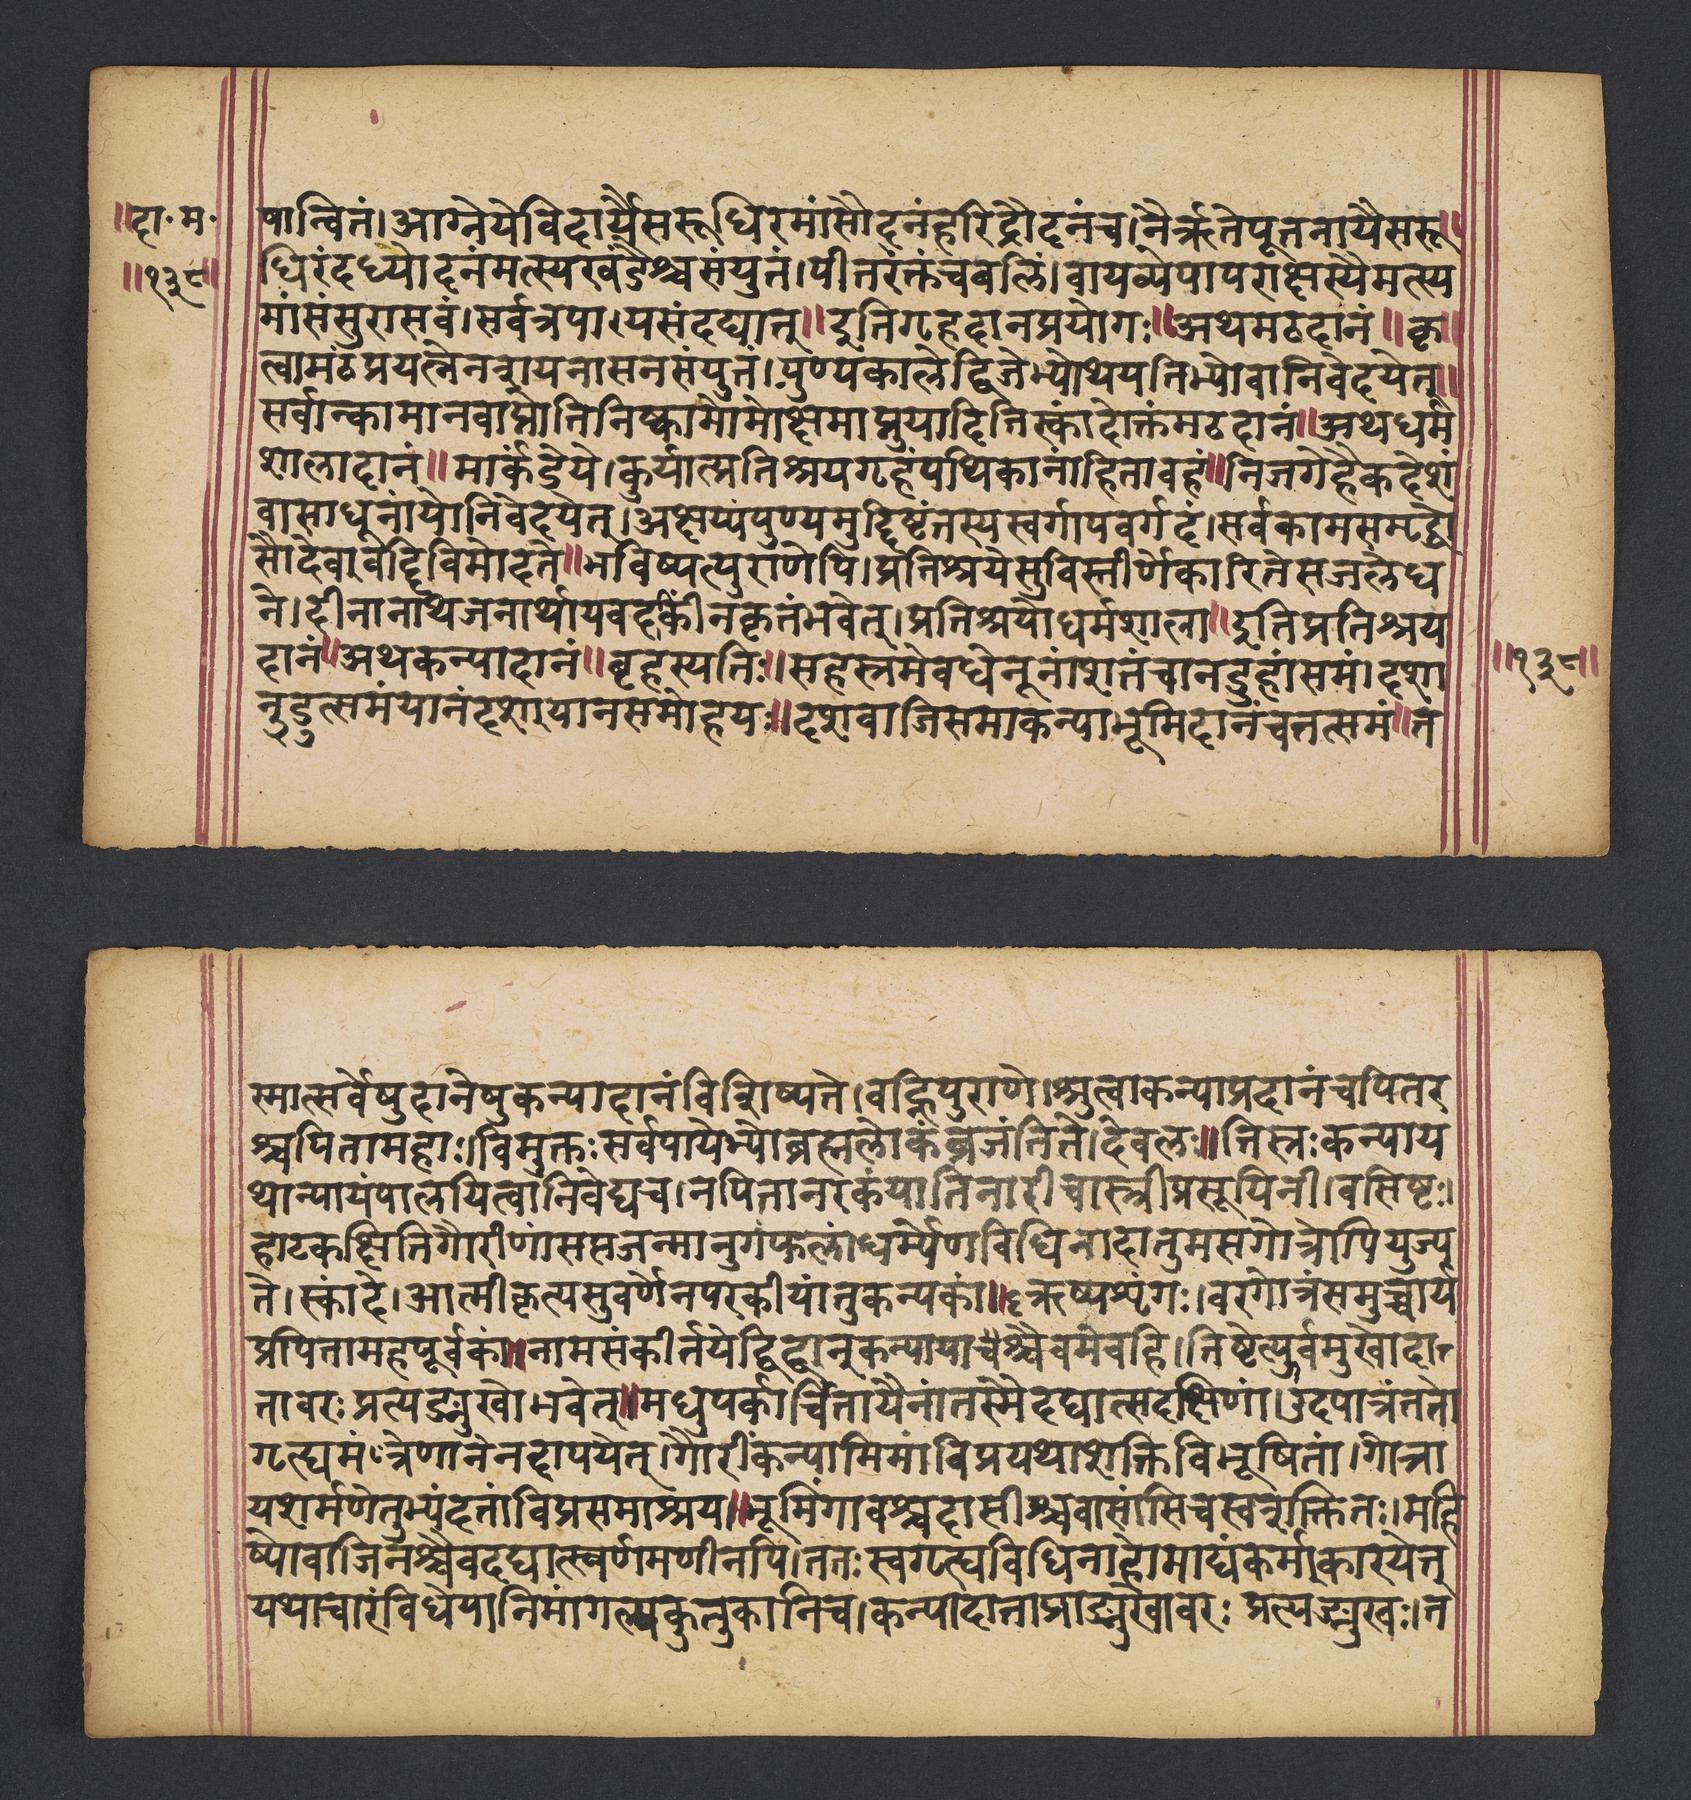 ॥दा॰म॰
॥१३८॥
षान्वितं।आग्नेयेविदार्यैसरूधिरमांसौदनंहरिद्रौदनंच।नैर्ऋतेपूतनायैसरू॥
धिरंदध्योदनंमत्स्यखंडैश्चसंयुतं।पीतरक्तंचबलिं।वायव्येपापराक्षस्यैमत्स्य
मांसंसुरासवं।सर्वत्रपायसंदद्यात्॥इतिगृहदानप्रयोगः॥अथमठदानं॥कृ॥
त्वामठंप्रयत्नेनशयनासनसंयुतं।पुण्यकालेद्विजेभ्योथयतिभ्योवानिवेदयेत्॥
सर्वान्कामानवाप्नोतिनिष्कामोमोक्षमाप्नुयादितिस्कांदोक्तंमठदानं॥अथधर्म
शालादानं॥मार्कंडेये।कुर्यात्प्रतिश्रयगृहंपथिकानांहितावहं॥निजगेहैकदेशं
वासाधूनांयोनिवेदयेत्।अक्षय्यंपुण्यमुद्दिष्टंतस्यस्वर्गापवर्गदं।सर्वकामसमृद्धो
सौदेवावद्दिविमोदते॥भविष्यत्पुराणेपि।प्रतिश्रयेसुविस्तीर्णेकारितेसजलेंध
ने।दीनानाथजनार्थायवदकिंनकृतंभवेत्।प्रतिश्रयोधर्मशाला॥इतिप्रतिश्रय
दानं॥अथकन्यादानं॥बृहस्पतिः॥सहस्त्रमेवधेनूनांशतंचानडुहांसमं।दशा
नुडुत्समंयानंदशयानसमोहयः॥दशवाजिसमाकन्याभूमिदानंचतत्समं॥तं
॥१३८॥
स्मात्सर्वेषुदानेषुकन्यादानंविशिष्यते।वह्निपुराणे।श्रुत्वाकन्याप्रदानंचपितर
श्चपितामहाः।विमुक्तःसर्वपापेभ्योब्रह्मलोकंव्रजंतिते।देवलः॥तिस्त्रःकन्याय
थान्यायंपालयित्वानिवेद्यच।नपितानरकंयातिनारीवास्त्रीप्रसूयिनी।वसिष्टः।
हाटकक्षितिगौरीणांसप्तजन्मानुगंफलं।धर्म्येणविधिनादातुमसगोत्रोपियुज्य
ते।स्कांदे।आत्मीकृत्यसुवर्णेनपरकीयांतुकन्यकां॥ऋष्यशृंगः।वरगोत्रंसमुच्चार्य
प्रपितामहपूर्वकं॥नामसंकीर्तयेद्विद्वान्कन्यायाश्चैवमेवहि।तिष्टेत्पूर्वमुखोदा
तावरःप्रत्यङ्मुखोभवेत्॥मधुपर्कार्चितायैनांतस्मैदद्यात्सदक्षिणां।उदपात्रंततो
गृत्द्यमंत्रेणानेनदापयेत्।गौरींकन्यामिमांविप्रयथाशक्तिविभूषितां।गोत्रा
यशर्मणेतुभ्यंदत्तांविप्रसमाश्रय॥भूमिंगावश्चदासीश्चवासांसिचस्वशक्तितः।महि
ष्योवाजिनश्चैवदद्यात्स्वर्णमणीनपि।ततःस्वगृत्द्यविधिनाहोमाद्यंकर्मकारयेत्
यथाचारंविधेयानिमांगल्यकुतुकानिच।कन्यादाताप्राङ्मुखोवरः प्रत्यङ्मुखः।त